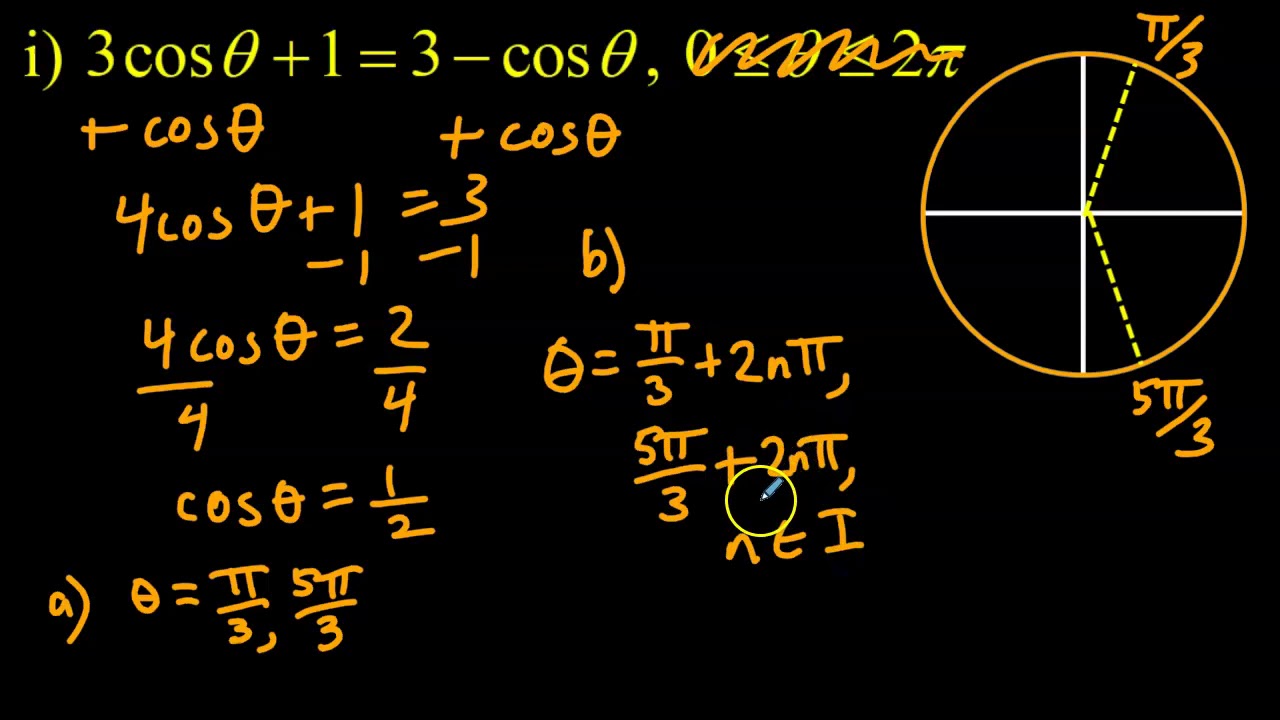 i) 3cosθ + 1 = 3 − cosθ, 0 ≤ θ ≤ 2π
+ cosθ + cosθ
4cosθ + 1 = 3
−1 −1
4cosθ/4 = 2/4
cosθ = 1/2
a) θ = π/3, 5π/3
b)
θ = π/3 + 2nπ,
5π/3 + 2nπ,
n ∈ I
π/3
5π/3